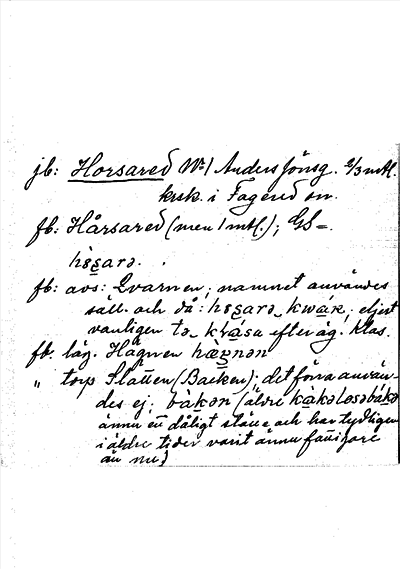 jb: Horsared No 1 Anders Jönsg. 2/3 mtl.
krsk. i Fagered sn.
fb: Hårsared (men 1 mtl.); GS=
hòsarə.
fb: avs: Qvarnen; namnet användes
säll. och då: hòsarə kwán; eljest
vanligen tə kràsu efter äg. Klas.
fb. läg. Hägnen hæ̀ŋnən
" torp Slätten (Backen); det förra använ-
des ej; bàkən (äldre kàkəlosəbákə
ännu ett dåligt ställe och har tydligen
i äldre tider varit ännu fattigare
än nu)